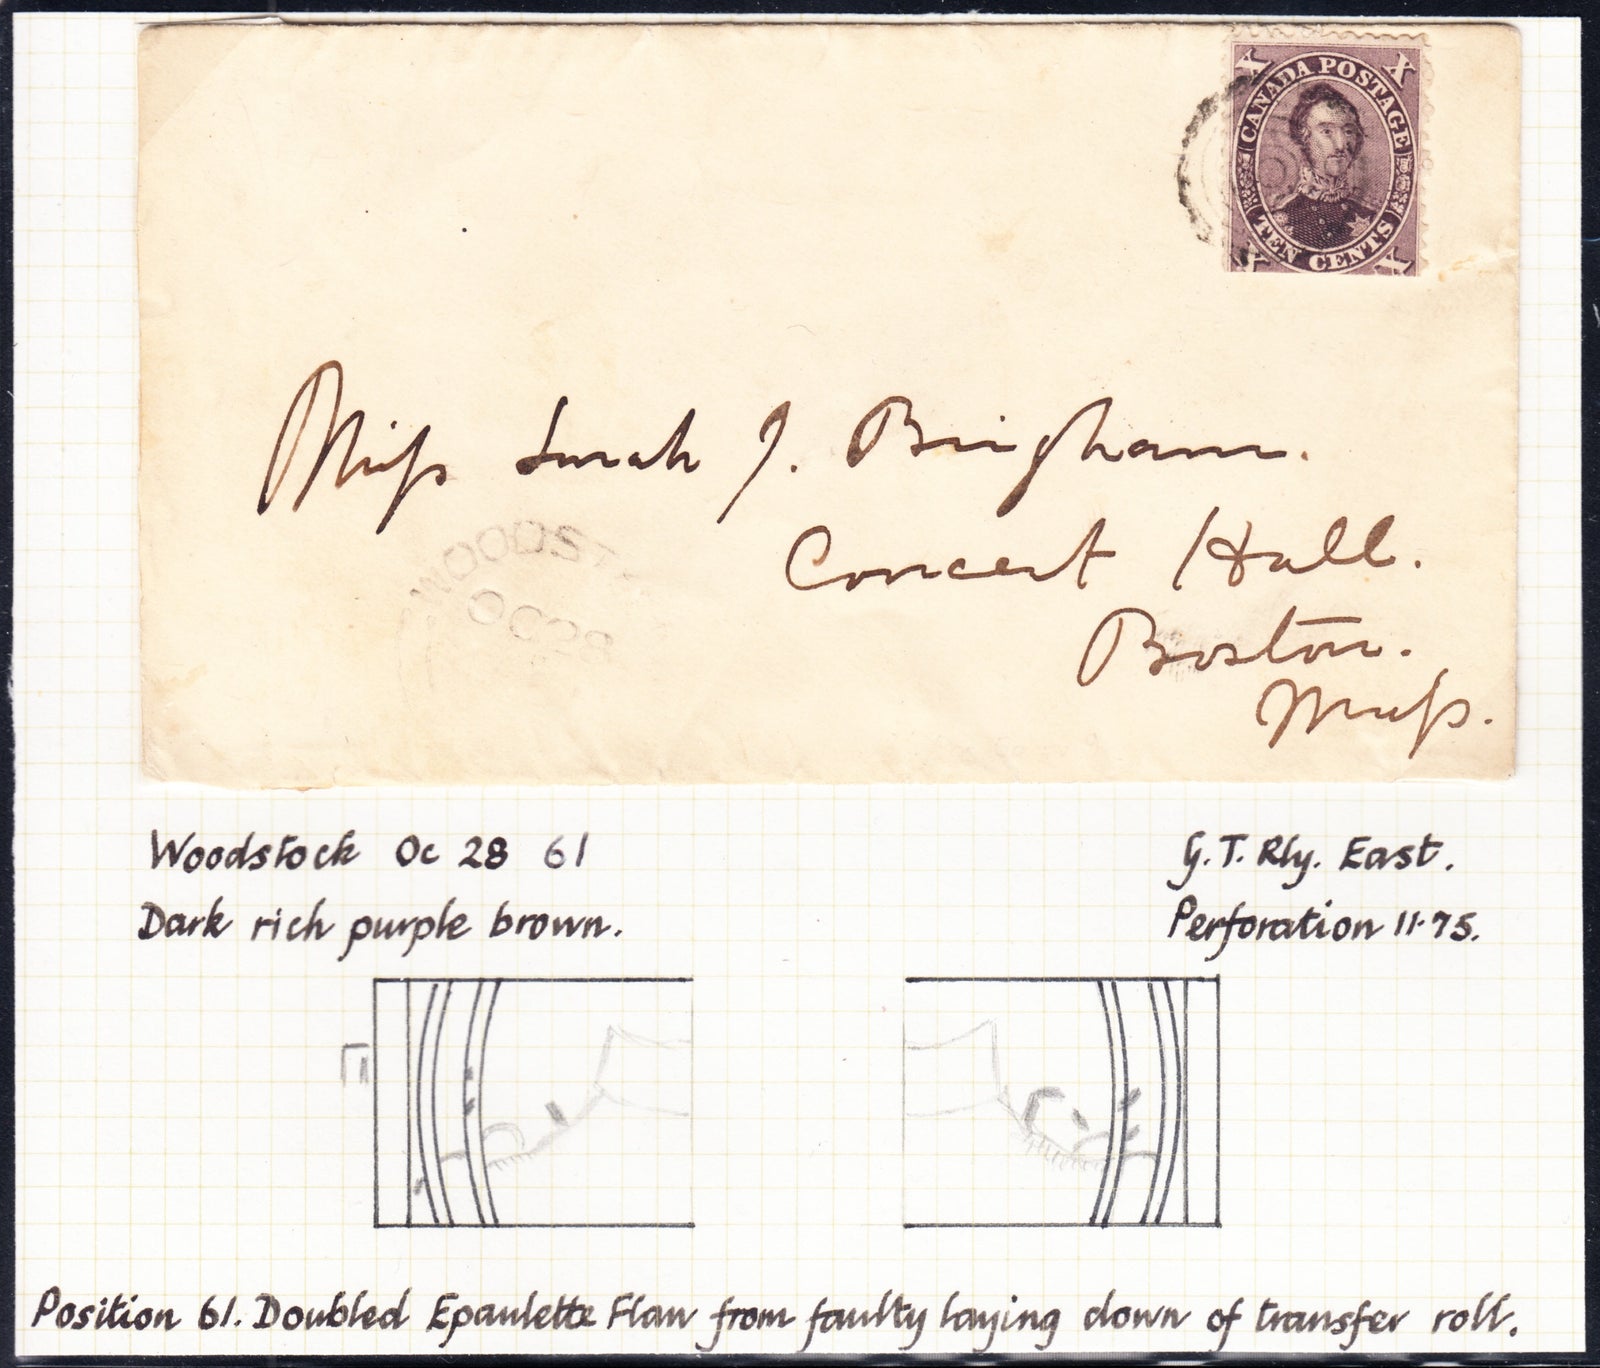 X X
CANADA POSTAGE
TEN CENTS
X X
Miss Sarah J. Bingham.
Concert Hall.
Boston.
Mass.
WOODST
OC 28
Woodstock Oc 28 61
G. T. Rly. East.
Dark rich purple brown.
Perforation 11·75.
Position 61. Doubled Epaulette Flaw from faulty laying down of transfer roll.